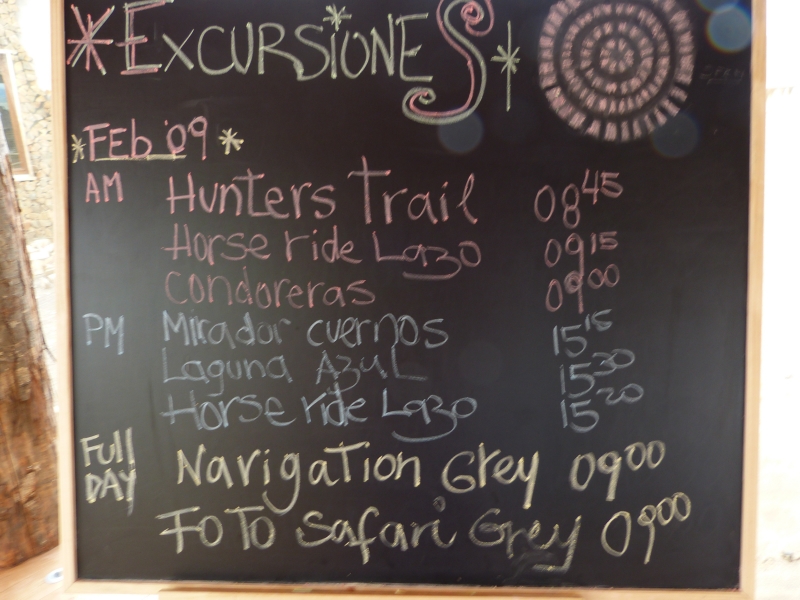 *ExcursioneS*
*Feb '09*
AM Hunters Trail 08 45
Horse ride Lazo 09 15
condoreras 09 00
PM Mirador cuernos 15 15
Laguna AzuL 15 30
Horse ride Lazo 15 20
Full DAY Navigation Grey 09 00
FoTo Safari Grey 09 00